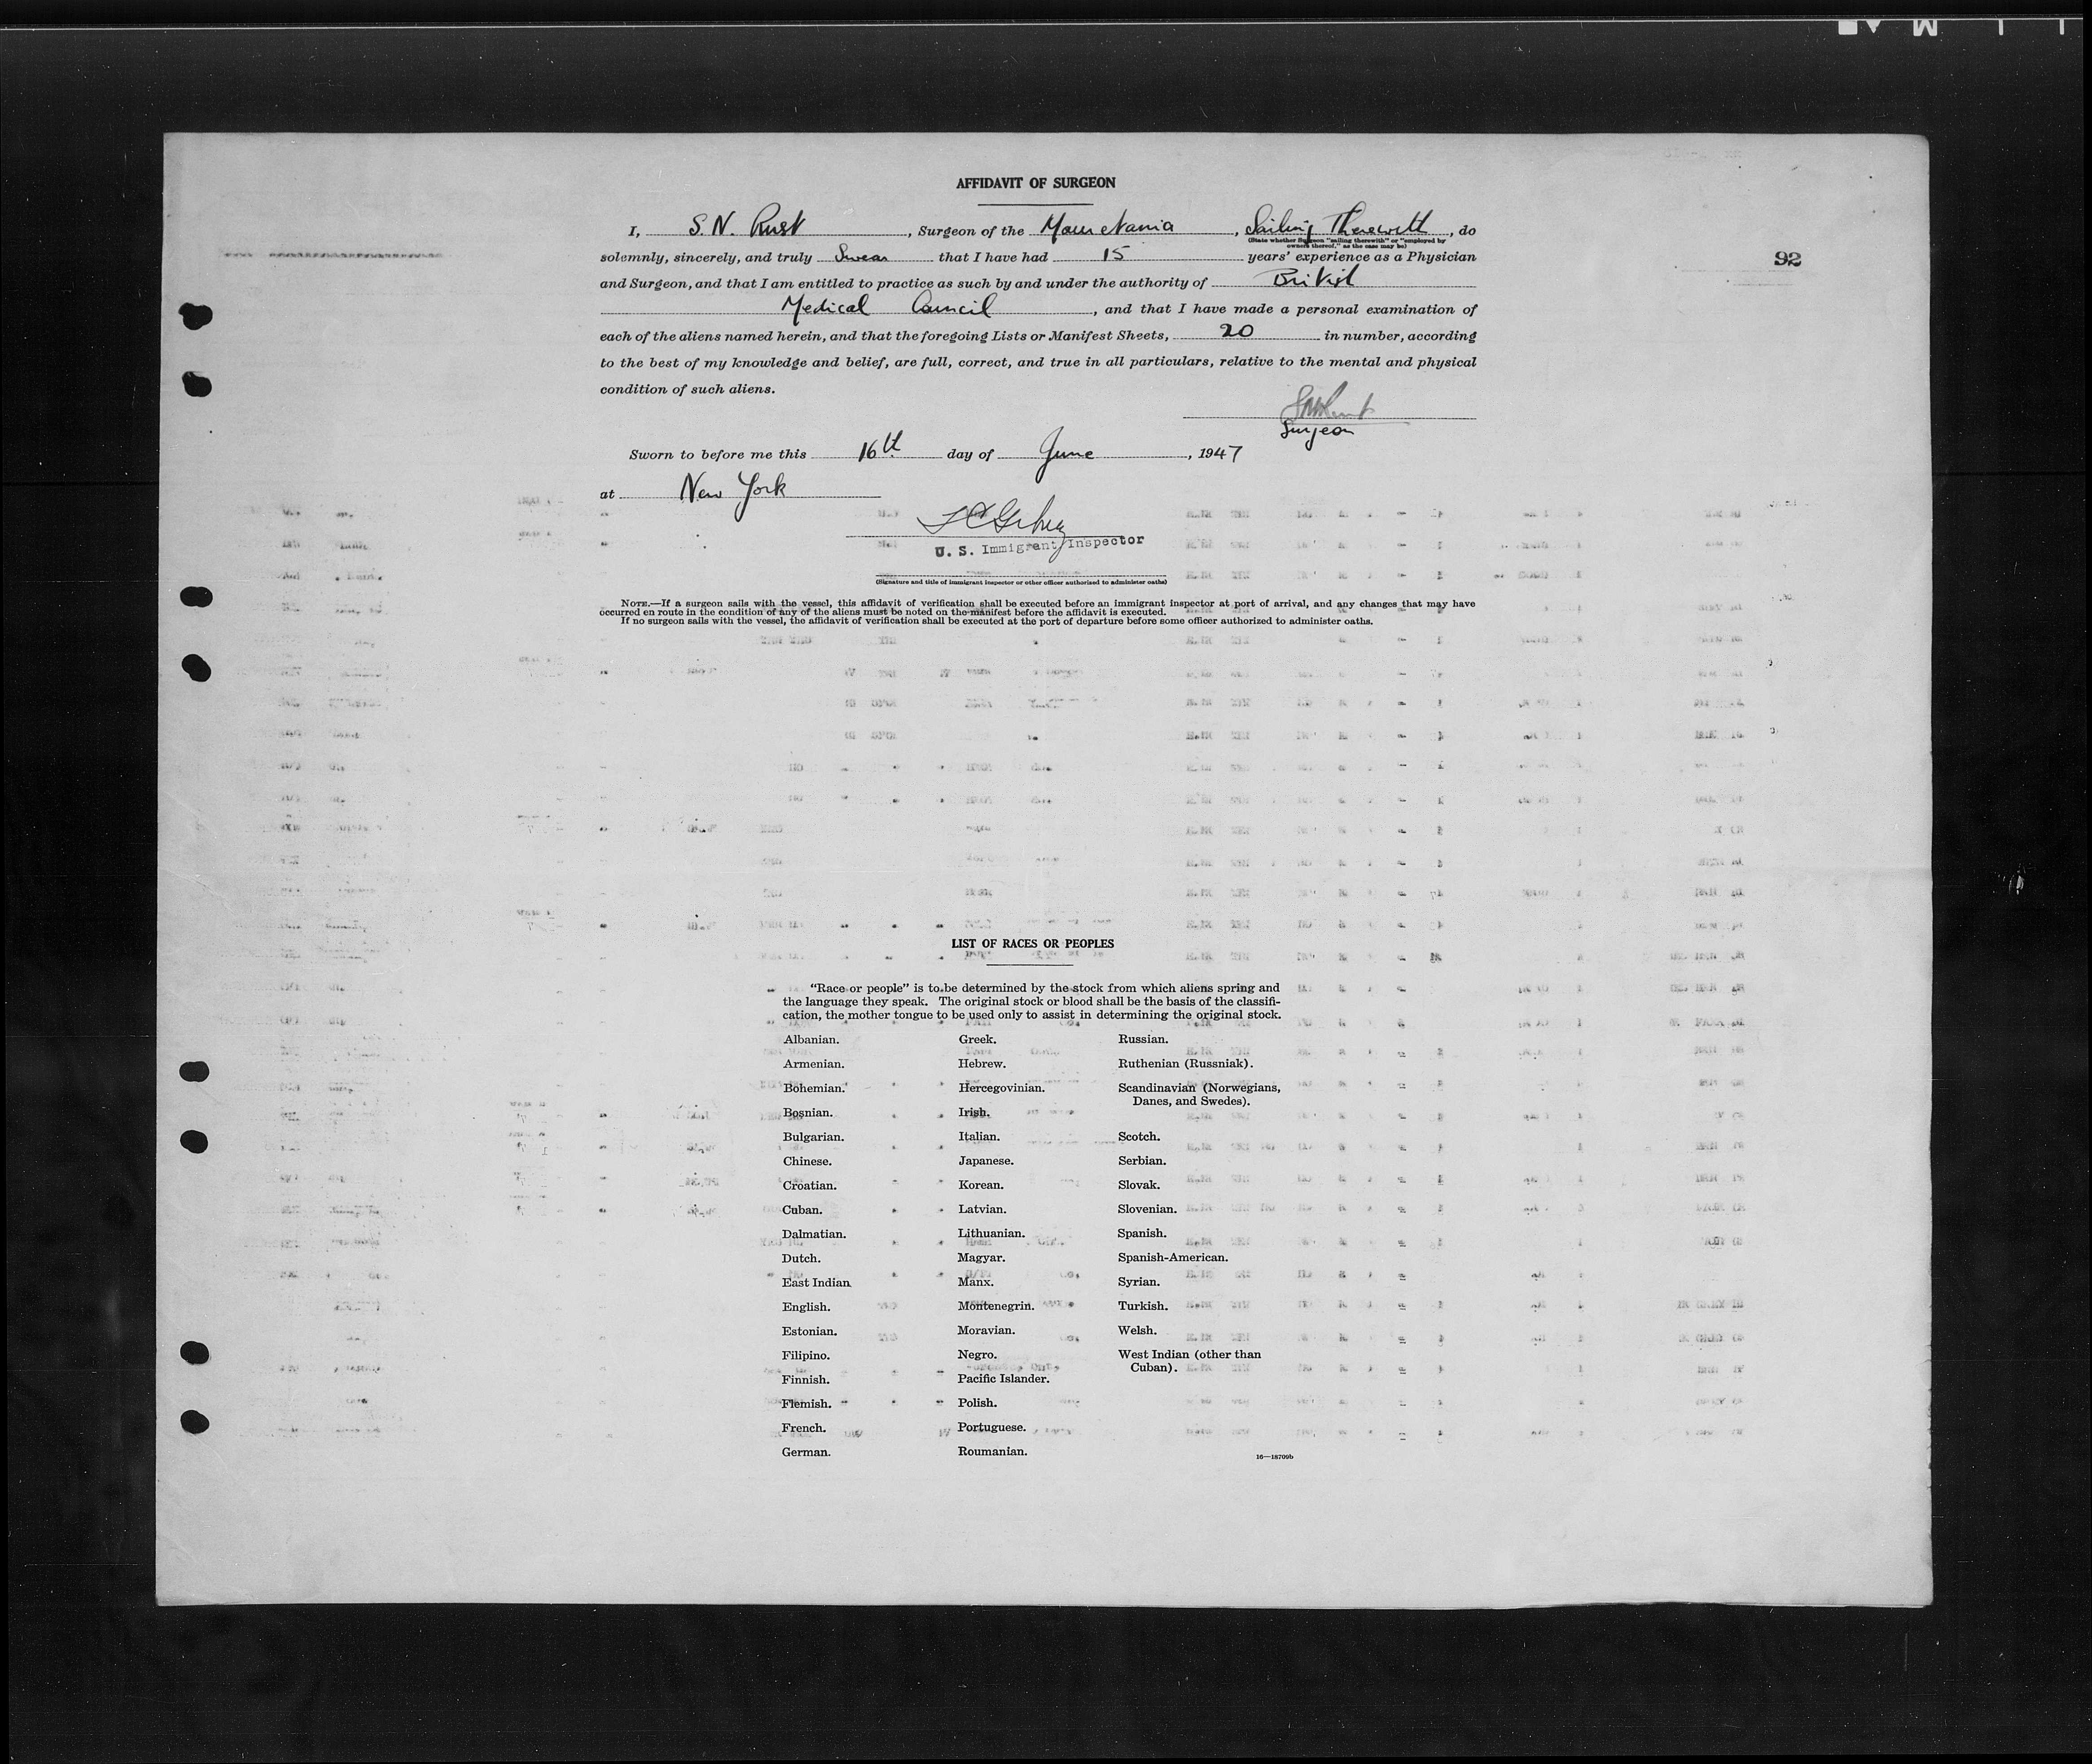 AFFIDAVIT OF SURGEON
I, S. N. Rust, Surgeon of the Mauretania, Sailing Therewith, do
(State whether Surgeon "sailing therewith" or "employed by
owners thereof," as the case may be)
solemnly, sincerely, and truly Swear that I have had 15 years' experience as a Physician
92
and Surgeon, and that I am entitled to practice as such by and under the authority of British
Medical Council, and that I have made a personal examination of
each of the aliens named herein, and that the foregoing Lists or Manifest Sheets, 20 in number, according
to the best of my knowledge and belief, are full, correct, and true in all particulars, relative to the mental and physical
condition of such aliens.
Surgeon
Sworn to before me this 16th day of June, 1947
at New York
U. S. Immigrant Inspector
(Signature and title of immigrant inspector or other officer authorized to administer oaths)
NOTE.—If a surgeon sails with the vessel, this affidavit of verification shall be executed before an immigrant inspector at port of arrival, and any changes that may have
occurred en route in the condition of any of the aliens must be noted on the manifest before the affidavit is executed.
If no surgeon sails with the vessel, the affidavit of verification shall be executed at the port of departure before some officer authorized to administer oaths.
LIST OF RACES OR PEOPLES
"Race or people" is to be determined by the stock from which aliens spring and
the language they speak. The original stock or blood shall be the basis of the classifi-
cation, the mother tongue to be used only to assist in determining the original stock.
Albanian.
Armenian.
Bohemian.
Bosnian.
Bulgarian.
Chinese.
Croatian.
Cuban.
Dalmatian.
Dutch.
East Indian
English.
Estonian.
Filipino.
Finnish.
Flemish.
French.
German.
Greek.
Hebrew.
Hercegovinian.
Irish.
Italian.
Japanese.
Korean.
Latvian.
Lithuanian.
Magyar.
Manx.
Montenegrin.
Moravian.
Negro.
Pacific Islander.
Polish.
Portuguese.
Roumanian.
Russian.
Ruthenian (Russniak).
Scandinavian (Norwegians,
Danes, and Swedes).
Scotch.
Serbian.
Slovak.
Slovenian.
Spanish.
Spanish-American.
Syrian.
Turkish.
Welsh.
West Indian (other than
Cuban).
16—18709b